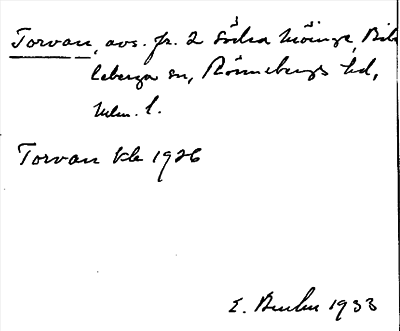 Torvan, avs. fr. 2 Södra Möinge, Bil-
leberga sn, Rönnebergs hd,
Mlm. l.
Torvan kb 1926
E. 1933